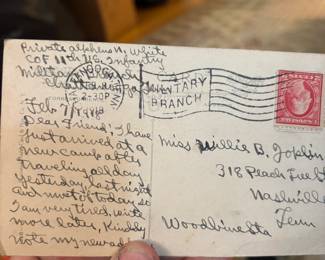 Private Alphens N, White
CO F 11th U.S. Infantry
Military Branch
Chattanooga
2-30P
1918
MILITARY
BRANCH
Feb 7/1918
Dear Friend; I have
just arrived at a
new camp ably
traveling all day
yesterday, last night
and most of today so
I am very tired, write
more later, Kindly
note my new ad
Miss Willie B. Joplin
318 Peach Tree St
Nashville
Tenn
Woodbine Sta